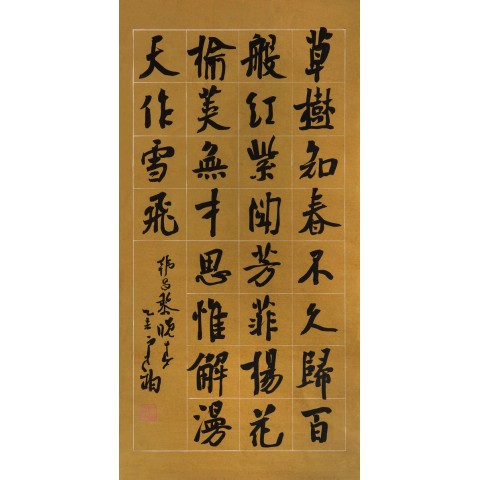 草樹知春不久歸百
般红紫闘芳菲楊花
榆莢無才思惟解漫
天作雪飛
韓昌黎晚春
乙亥